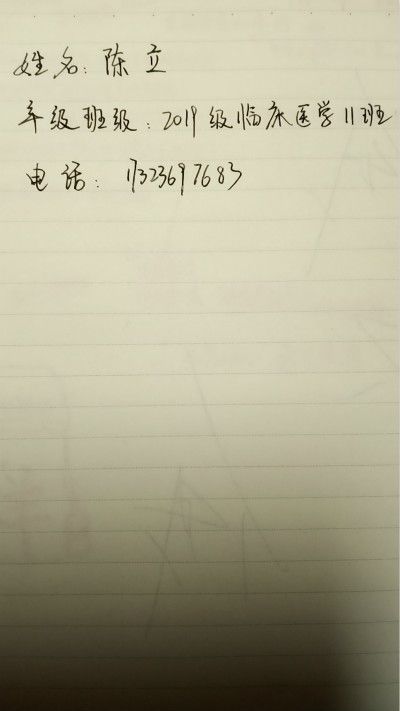 姓名：陈立
年级班级：2019级临床医学11班
电话：17323697683